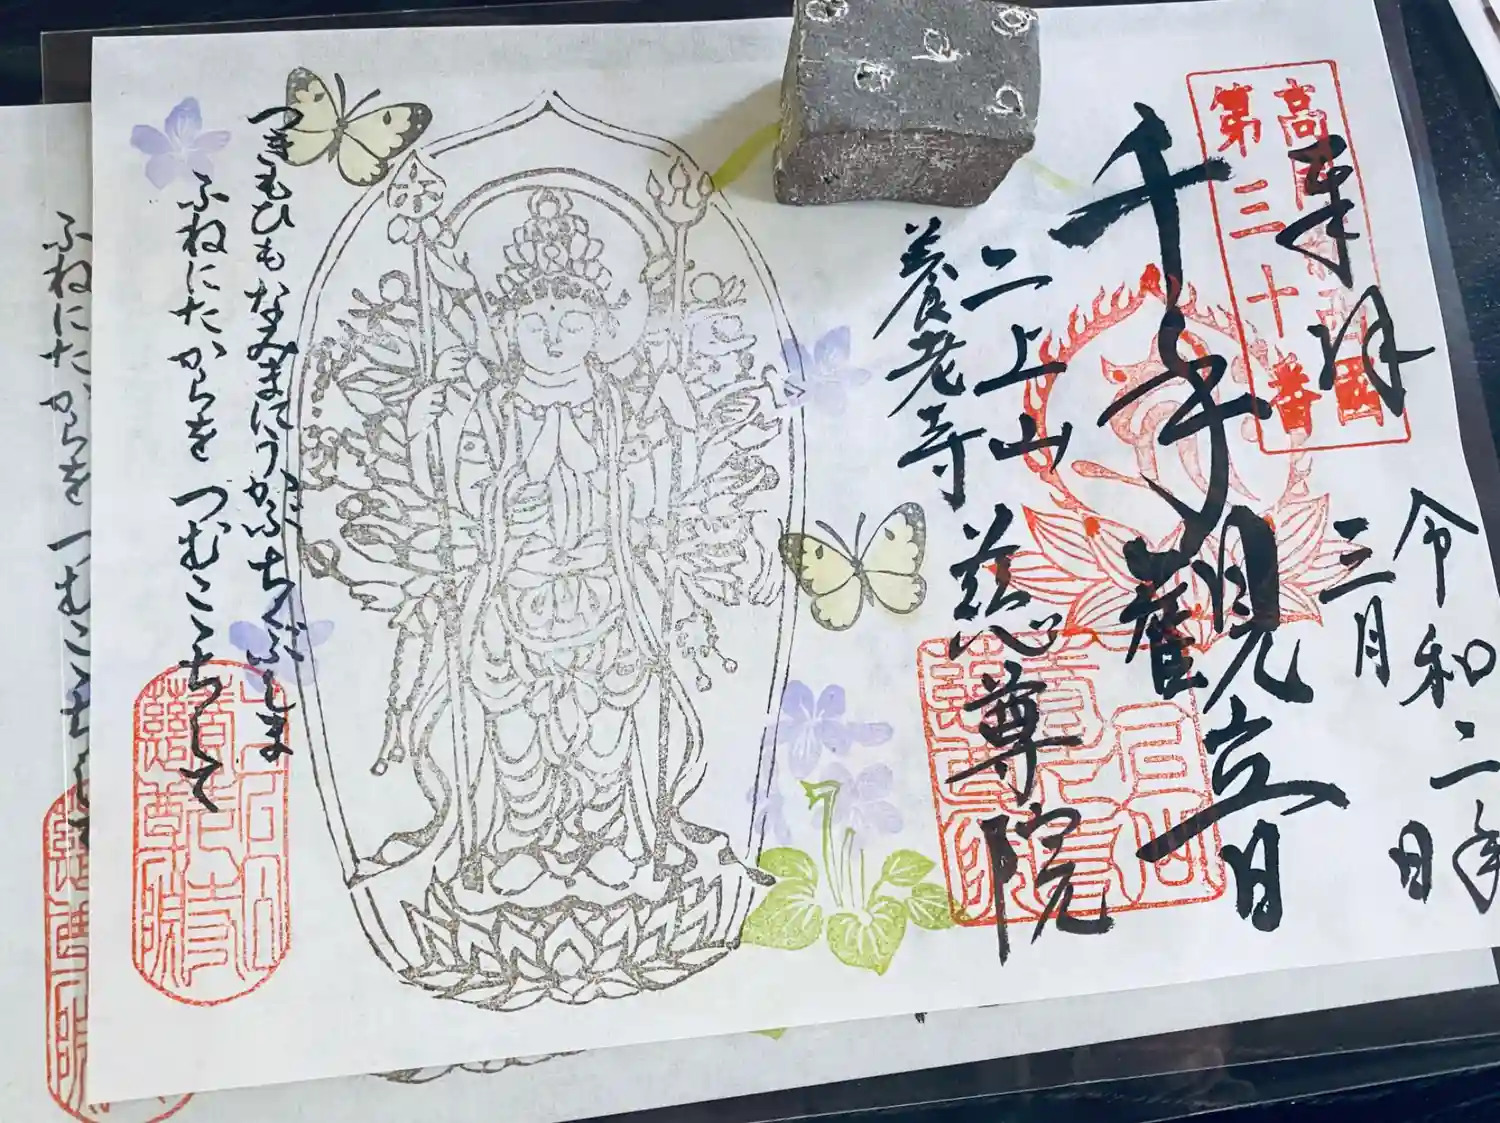 令和二年
三月 日
高岡新西國
第三十番
奉拝
千手觀音
二上山
養老寺
慈尊院
つきもひもなみまにうかふちくぶしま
ふねにたからをつむこゝちして
養老寺
慈尊院
ふねにたからをつむこゝち